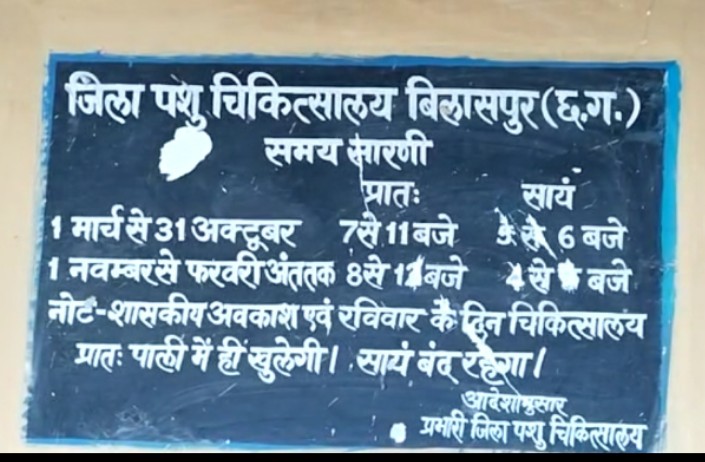 जिला पशु चिकित्सालय बिलासपुर (छ.ग.)
समय सारणी
प्रातः सायं
1 मार्च से 31 अक्टूबर 7 से 11 बजे 5 से 6 बजे
1 नवम्बर से फरवरी अंत तक 8 से बजे 4 से बजे
नोट-शासकीय अवकाश एवं रविवार के दिन चिकित्सालय
प्रातः पाली में ही खुलेगी। सायं बंद रहेगा।
आदेशानुसार
प्रभारी जिला पशु चिकित्सालय